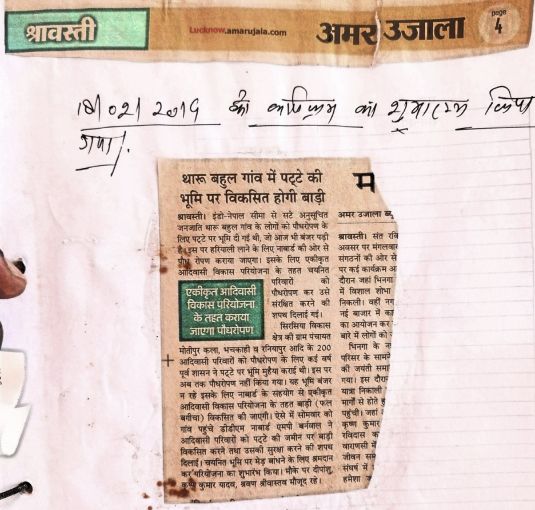 श्रावस्ती
Lucknow.amarujala.com
अमर उजाला
page
4
18/02/2019 को कार्यक्रम का शुभारम्भ किया
गया।
थारू बहुल गांव में पट्टे की
भूमि पर विकसित होगी बाड़ी
श्रावस्ती। इंडो-नेपाल सीमा से सटे अनुसूचित
जनजाति थारू बहुल गांव के लोगों को पौधरोपण के
लिए पट्टे पर भूमि दी गई थी, जो आज भी बंजर पड़ी
है। इस पर हरियाली लाने के लिए नाबार्ड की ओर से
पौध रोपण कराया जाएगा। इसके लिए एकीकृत
आदिवासी विकास परियोजना के तहत चयनित
परिवारों को
पौधरोपण कर उसे
संरक्षित करने की
शपथ दिलाई गई।
सिरसिया विकास
क्षेत्र की ग्राम पंचायत
एकीकृत आदिवासी
विकास परियोजना
के तहत कराया
जाएगा पौधरोपण
मोतीपुर कला, भचकाही व रनियापुर आदि के 200
आदिवासी परिवारों को पौधरोपण के लिए कई वर्ष
पूर्व शासन ने पट्टे पर भूमि मुहैया कराई थी। इस पर
अब तक पौधरोपण नहीं किया गया। यह भूमि बंजर
न रहे इसके लिए नाबार्ड के सहयोग से एकीकृत
आदिवासी विकास परियोजना के तहत बाड़ी (फल
बगीचा) विकसित की जाएगी। ऐसे में सोमवार को
गांव पहुंचे डीडीएम नाबार्ड एमपी बर्नवाल ने
आदिवासी परिवारों को पट्टे की जमीन पर बाड़ी
विकसित करने तथा उसकी सुरक्षा करने की शपथ
दिलाई। चयनित भूमि पर मेड़ बांधने के लिए श्रमदान
कर परियोजना का शुभारंभ किया। मौके पर दीपांशु,
कृष्ण कुमार यादव, श्रवण श्रीवास्तव मौजूद रहे।
म
अमर उजाला ब्यू
श्रावस्ती। संत रवि
अवसर पर मंगलवार
संगठनों की ओर से
पर कई कार्यक्रम आ
दौरान जहां भिनगा
में विशाल शोभा
निकली। वहीं नग
नई बाजार में का
का आयोजन कर
बारे में लोगों को
भिनगा के न
परिसर के सामने
की जयंती समा
गया। इस दौरा
यात्रा निकाली
मार्गों से होते हु
पहुंची। जहां
कृष्ण कुमार
रविदास क
वाराणसी में
जीवन सम
संघर्ष में
हमेशा